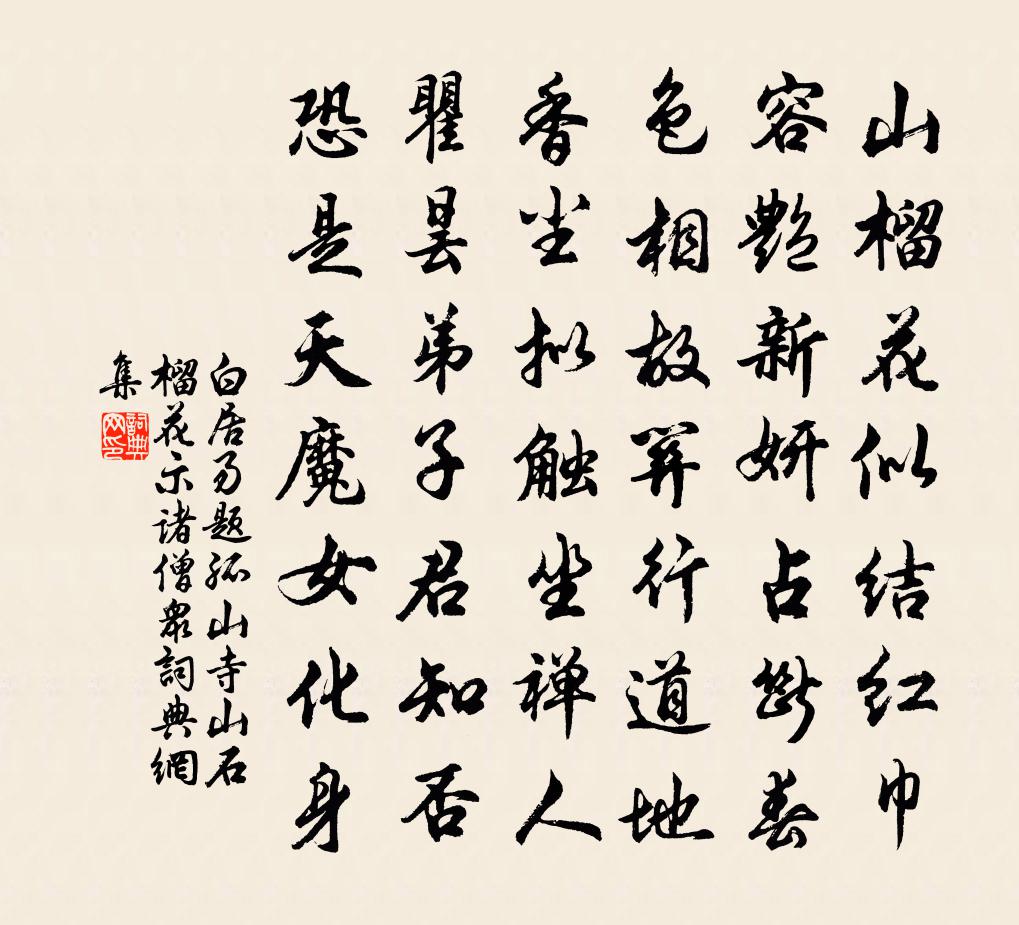 山榴花似结红巾
容艳新妍占断春
色相故关行道地
香尘拟触坐禅人
瞿昙弟子君知否
恐是天魔女化身
白居易题孤山寺山石
榴花示诸僧众詞典網
集
詞典网印